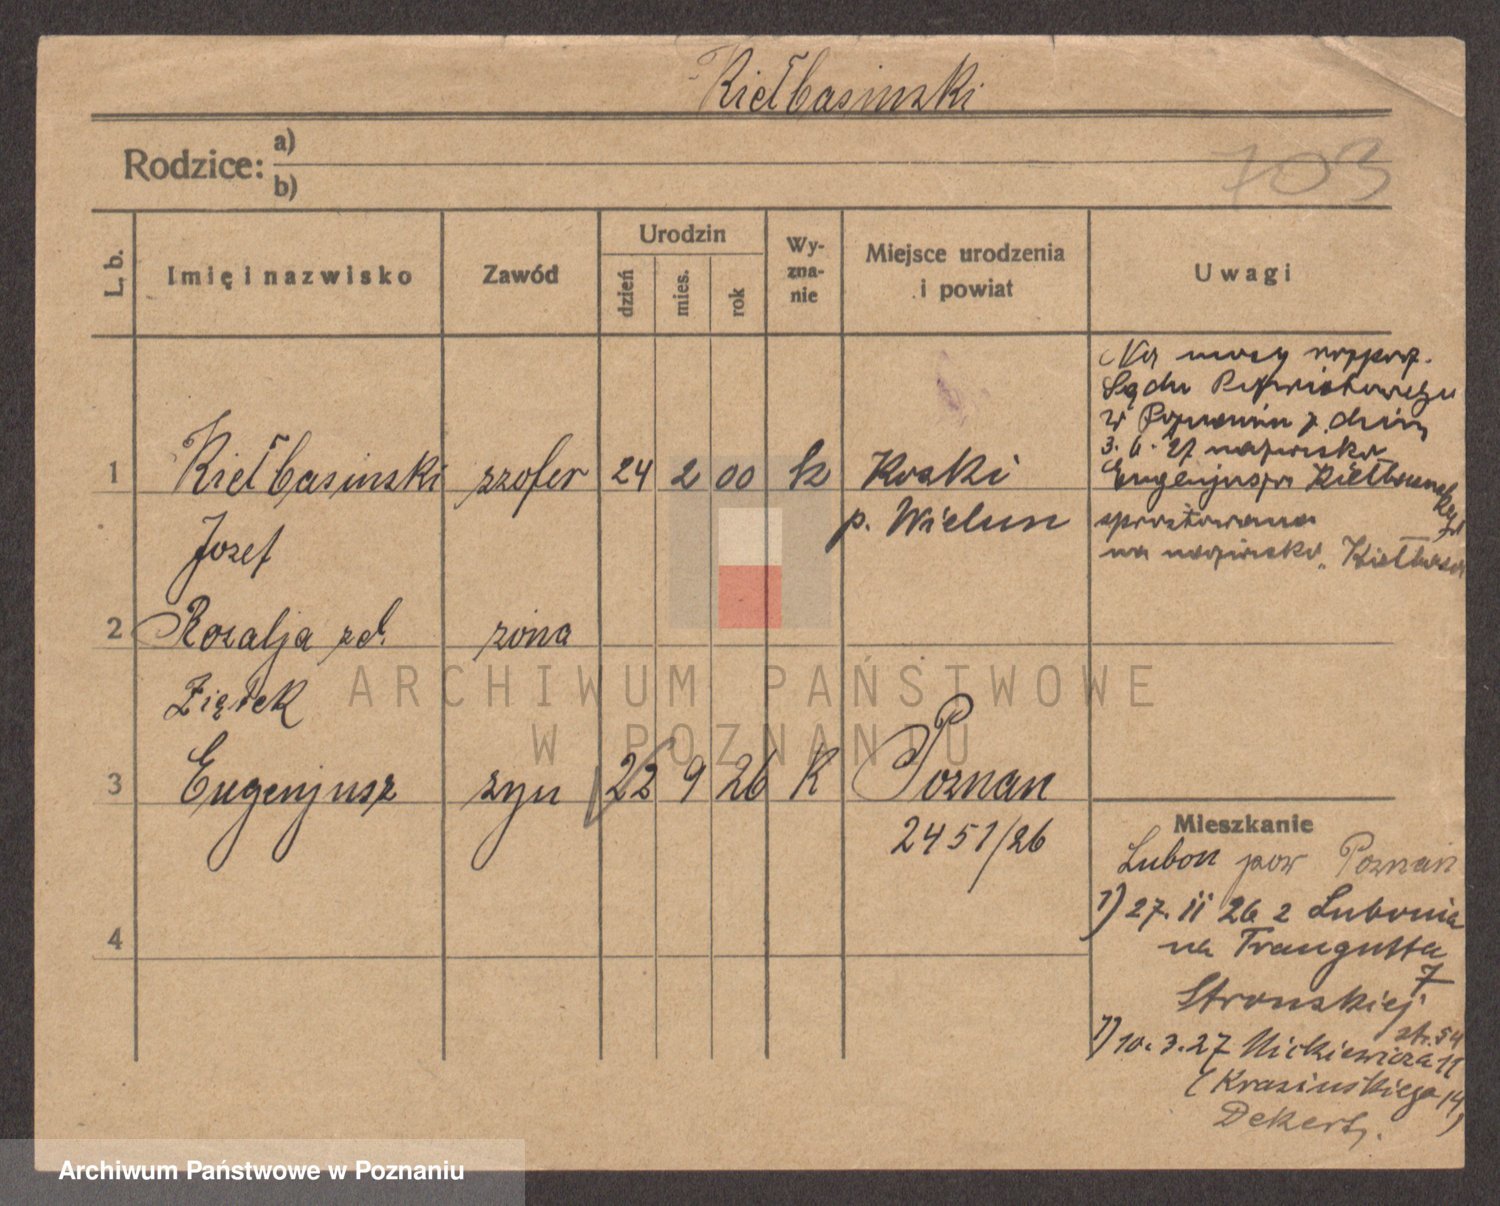 Kiełbasinski
Rodzice: a)
b)
703
L. b.
Imię i nazwisko
Zawód
Urodzin
dzień
mies.
rok
Wy-
zna-
nie
Miejsce urodzenia
i powiat
Uwagi
Na mocy rozporz.
Sądu Powiatowego
w Poznaniu z dnia
3. 27 nazwisko
Eugenjusza
sprostowano
na nazwisko „Kiełbasa
1 Kiełbasinski szofer 24 2 00 k Koski
Jozef p. Wielun
2 Rozalja zd. zona
Ziętek
3 Eugenjusz syn 22 9 26 K Poznan
2451/26
4
Mieszkanie
Lubon pow Poznań
1) 27. II 26 z Lubonia
na Traugutta
7
Stronskiej
str. 54
1) 10. 3. 27 Mickiewicza 11
(Krasinskiego 14)
Dekert.
ARCHIWUM PAŃSTWOWE
W POZNANIU
Archiwum Państwowe w Poznaniu